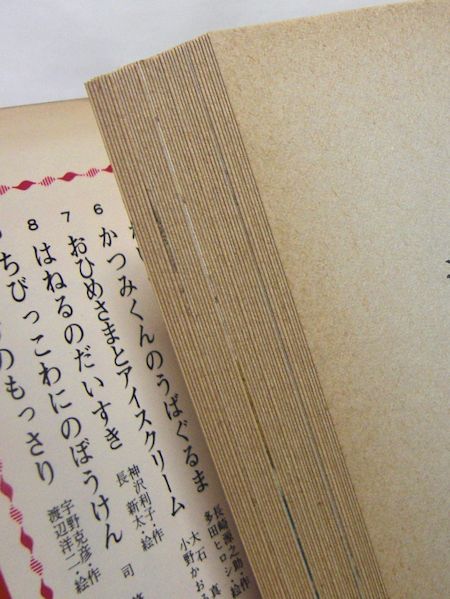 6 かつみくんのうばぐるま
長崎源之助・
多田ヒロシ・
7 おひめさまとアイスクリーム
大石 真
小野かおる
8 はねるのだいすき
神沢利子・作
長 新太・絵
ちびっこわにのぼうけん
司
のもっさり
宇野克彦・作
渡辺洋二・絵